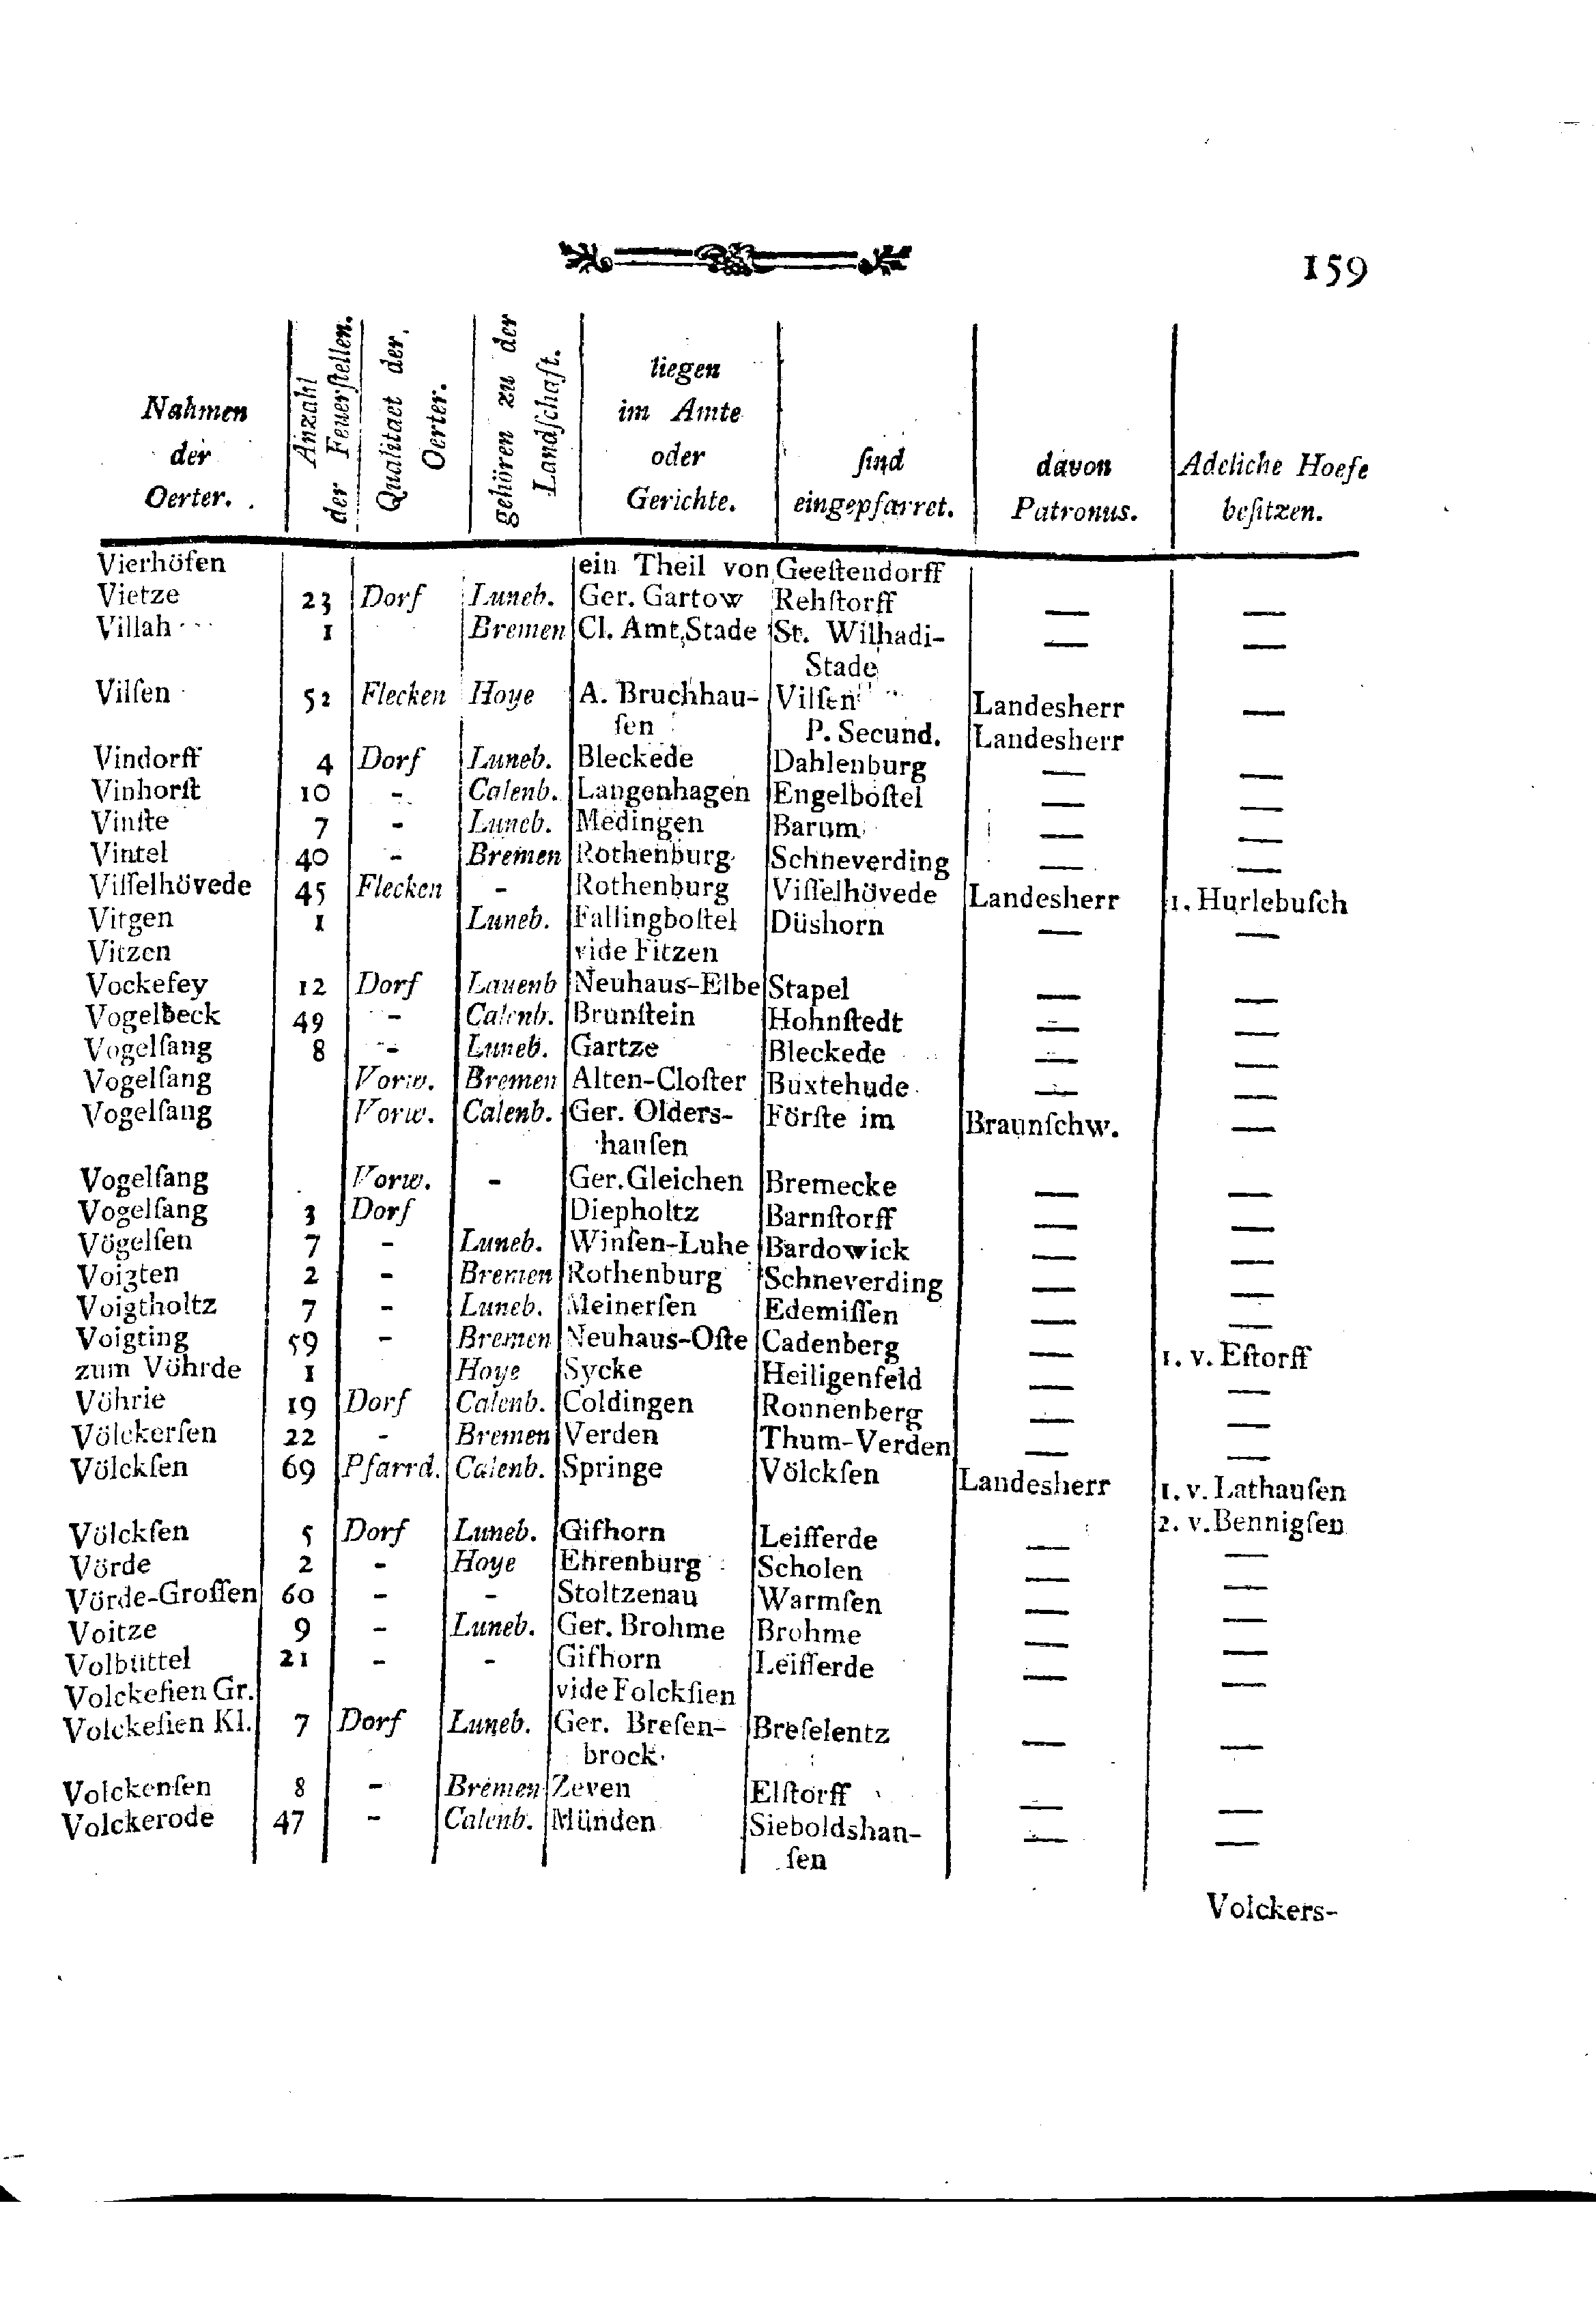 159
Nahmen der Oerter. Anzahl der Feuerſtellen. Qualitaet der Oerter. gehören zu der Landſchaft. liegen im Amte oder Gerichte. ſind eingepfarret. davon Patronus. Adeliche Hoefe beſitzen.
Vierhöfen ein Theil von Geeſtendorff
Vietze 23 Dorf Luneb. Ger. Gartow Rehſtorff — —
Villah 1 Bremen Cl. Amt Stade St. Wilhadi- — —
Stade
Vilſen 52 Flecken Hoye A. Bruchhau- Vilſen Landesherr —
ſen P. Secund. Landesherr
Vindorff 4 Dorf Luneb. Bleckede Dahlenburg — —
Vinhorſt 10 - Calenb. Langenhagen Engelboſtel — —
Vinſte 7 - Luneb. Medingen Barum — —
Vintel 40 - Bremen Rothenburg Schneverding — —
Viſſelhövede 45 Flecken - Rothenburg Viſſelhövede Landesherr 1. Hurlebuſch
Vitgen 1 Luneb. Fallingboſtel Düshorn — —
Vitzen vide Fitzen
Vockefey 12 Dorf Lauenb Neuhaus-Elbe Stapel — —
Vogelbeck 49 - Calenb. Brunſtein Hohnſtedt — —
Vogelſang 8 - Luneb. Gartze Bleckede — —
Vogelſang Vorw. Bremen Alten-Cloſter Buxtehude — —
Vogelſang Vorw. Calenb. Ger. Olders- Förſte im Braunſchw. —
hauſen
Vogelſang Vorw. - Ger. Gleichen Bremecke — —
Vogelſang 3 Dorf Diepholtz Barnſtorff — —
Vögelſen 7 - Luneb. Winſen-Luhe Bardowick — —
Voigten 2 - Bremen Rothenburg Schneverding — —
Voigtholtz 7 - Luneb. Meinerſen Edemiſſen — —
Voigting 59 - Bremen Neuhaus-Oſte Cadenberg — 1. v. Eſtorff
zum Vöhrde 1 Hoye Sycke Heiligenfeld — —
Vöhrie 19 Dorf Calenb. Coldingen Ronnenberg — —
Völckerſen 22 - Bremen Verden Thum-Verden — —
Völckſen 69 Pfarrd. Calenb. Springe Völckſen Landesherr 1. v. Lathauſen
2. v. Bennigſen
Völckſen 5 Dorf Luneb. Gifhorn Leifferde — —
Vörde 2 - Hoye Ehrenburg Scholen — —
Vörde-Groſſen 60 - - Stoltzenau Warmſen — —
Voitze 9 - Luneb. Ger. Brohme Brohme — —
Volbüttel 21 - - Gifhorn Leifferde — —
Volckeſien Gr. vide Folckſien
Volckeſien Kl. 7 Dorf Luneb. Ger. Breſen- Breſelentz — —
brock
Volckenſen 8 - Bremen Zeven Elſtorff — —
Volckerode 47 - Calenb. Münden Sieboldshan- — —
ſen
Volckers-